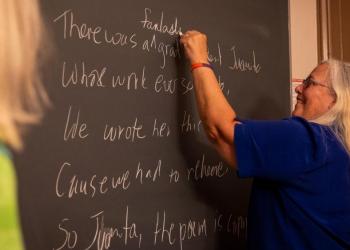 fantastic
There was a grad student Juanita
Whose work ever so
We wrote her this
Cause we had to rehome
So Juanita, the poem is